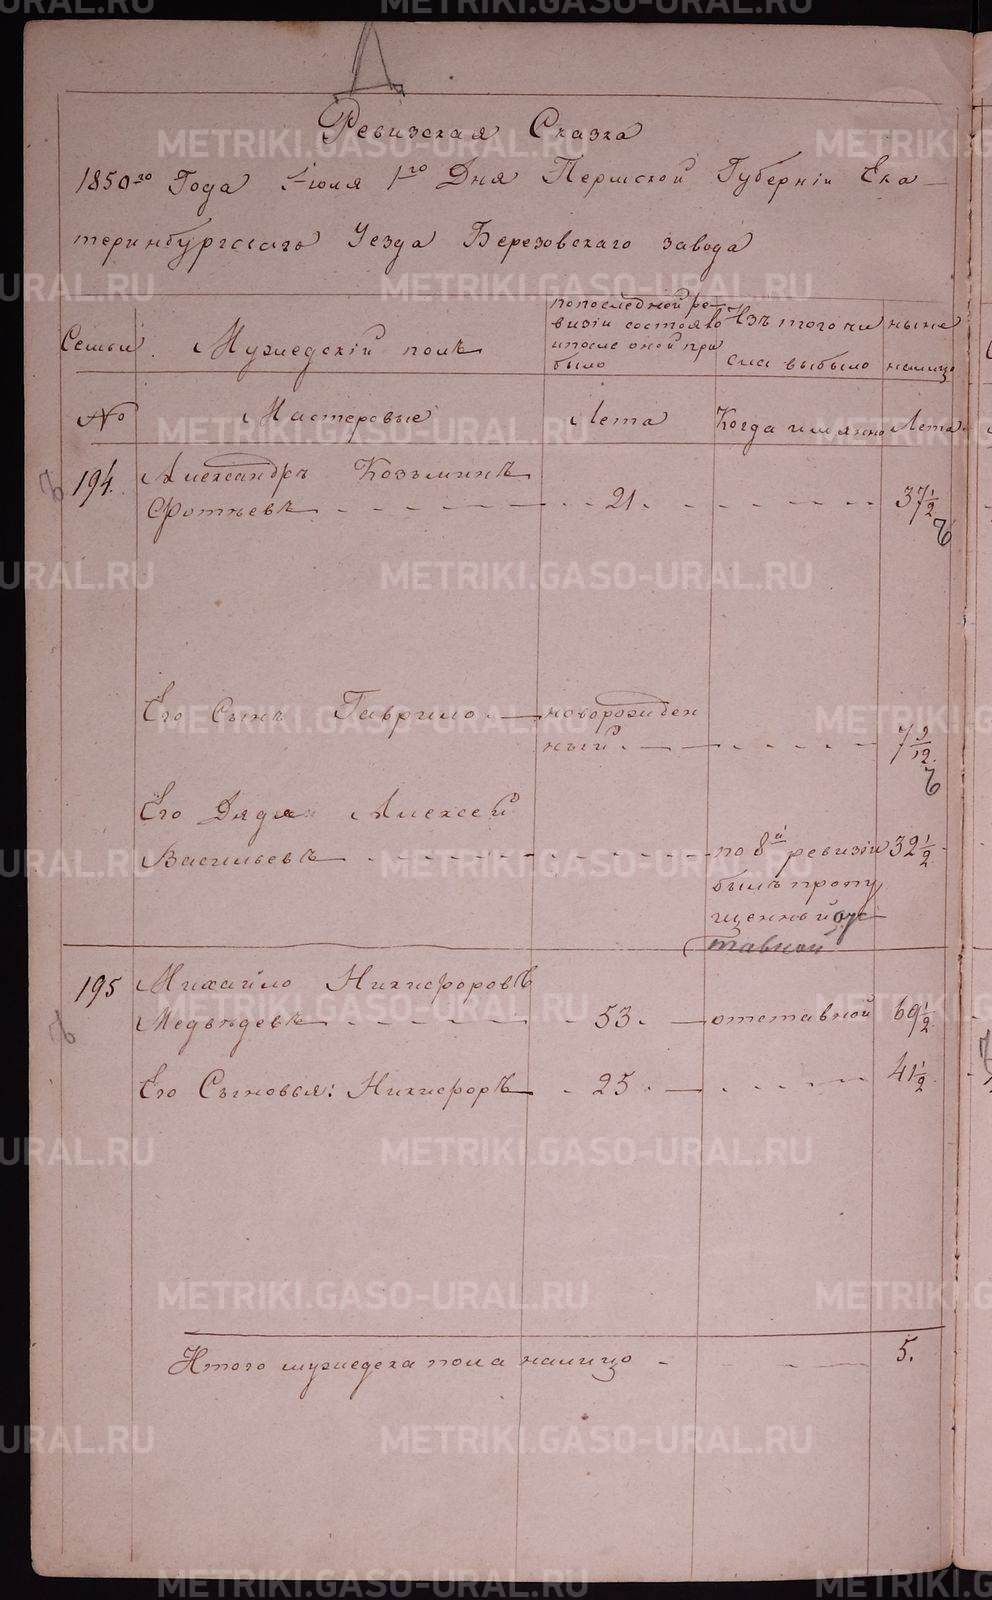 Ревизская Сказка
1850го Года Июля 1го Дня Пермской Губернiи Ека-
теринбургскаго Уезда Березовскаго завода
Семьи
Мужедскiй полъ
попоследной ре-
визiи состояло
ипосле оной при
было
Изъ того чи
сла выбыло
ныне
налицо
№
Мастеровые
Лета
Когда имянно
Лета
194.
Александръ Козьминъ
Фотѣевъ
21
37 1/2
Его Сынъ Гаврило
новорожден
ный
7 9/12
Его Дядя Алексей
Васильевъ
по 8й ревизiи
32 1/2
былъ пропу
щенный
тавной
195
Михайло Никифоровъ
Медвѣдевъ
53
отставной
69 1/2
Его Сыновья: Никифоръ
25
41 1/2
Итого мужедска пола налицо
5.
METRIKI.GASO-URAL.RU